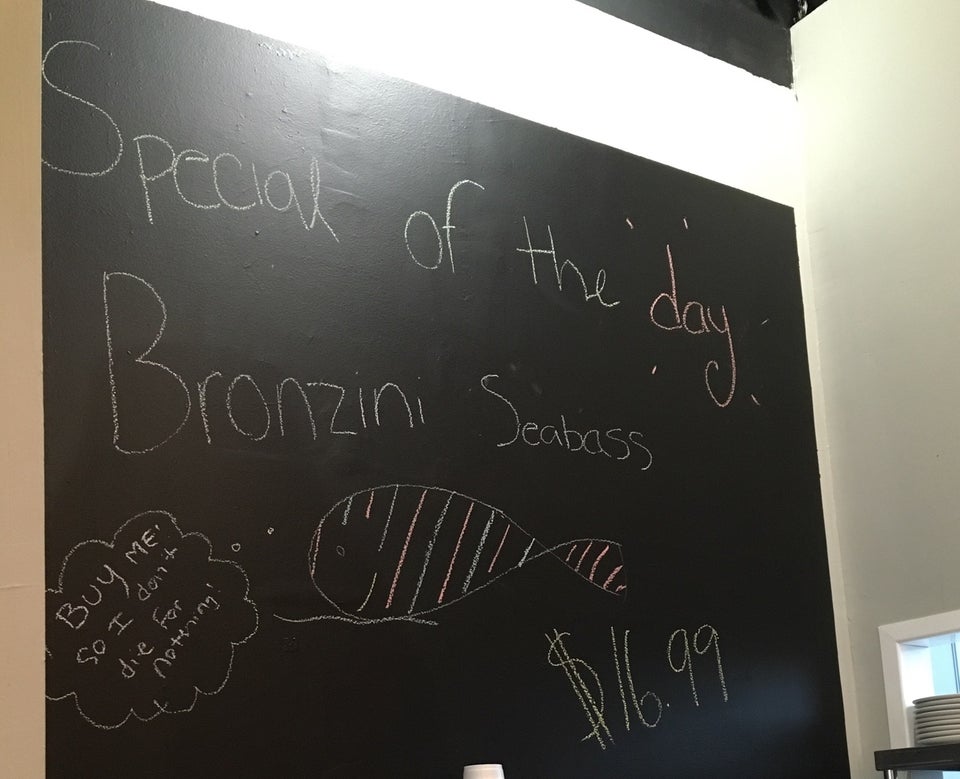 Special of the day
Bronzini Seabass
BUY ME!
so I don't
die for
nothing!
$16.99